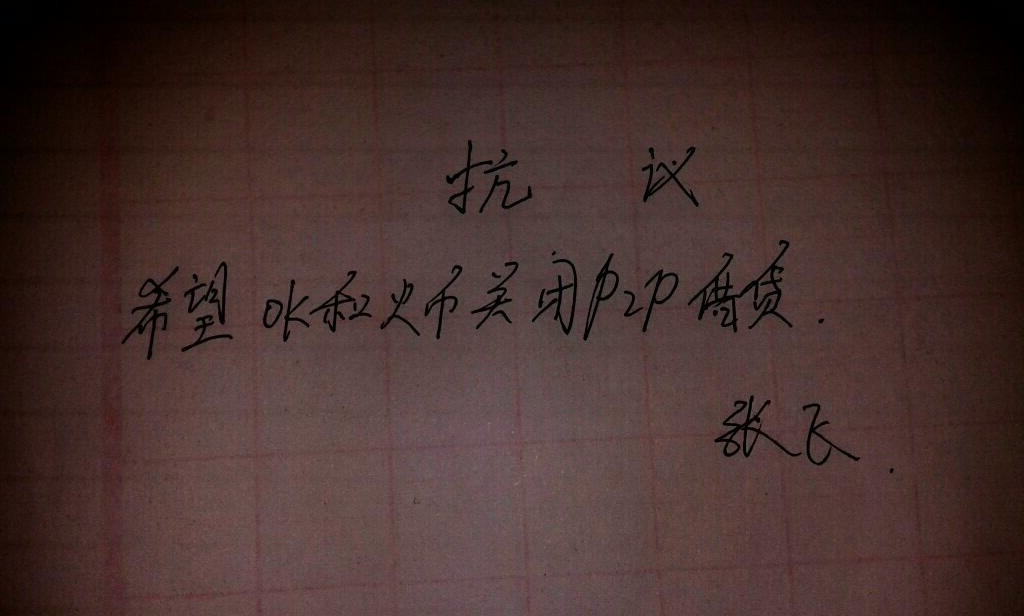 抗 议
希望OK和火币关闭P2P借贷.
张飞.